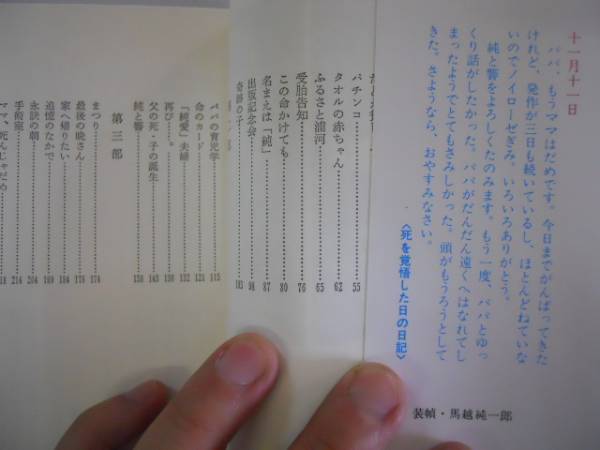 十一月十一日
パパ、もうママはだめです。今日までがんばってきた
けれど、発作が三日も続いているし、ほとんどねていな
いのでノイローゼぎみ。いろいろありがとう。
純と馨をよろしくたのみます。もう一度、パパとゆっ
くり話がしたかった。パパがだんだん遠くへはなれてし
まったようでとてもさみしかった。頭がもうろうとして
きた。さようなら、おやすみなさい。
〈死を覚悟した日の日記〉
装幀・馬越純一郎
パチンコ 55
タオルの赤ちゃん 62
ふるさと浦河 65
受胎告知 76
この命かけても 80
名まえは「純」 87
出版記念会 98
奇跡の子 103
パパの育児学 115
命のカード 121
「純愛」夫婦 132
再び…。 138
父の死・子の誕生 143
純と馨 158
第三部
まつり 174
最後の晩さん 178
家へ帰りたい 184
追憶のなかで 169
永訣の朝 204
手術室 214
ママ、死んじゃだめ